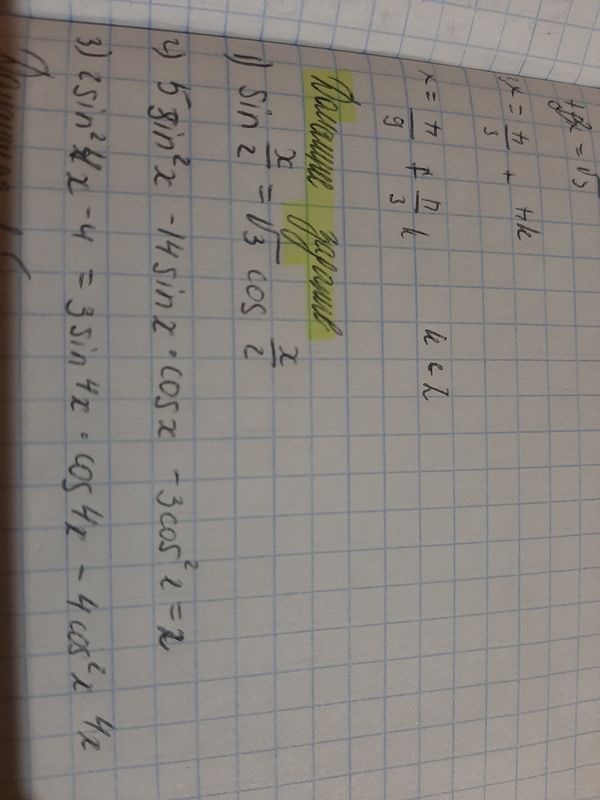 tg3x = √3
3x = π/3 + πk
x = π/9 + π/3 k k ∈ Z
Домашнее задание
1) sin x/2 = √3 cos x/2
2) 5 sin²x - 14 sin x · cos x - 3 cos²x = 2
3) 2 sin² 4x - 4 = 3 sin 4x · cos 4x - 4 cos² 4x